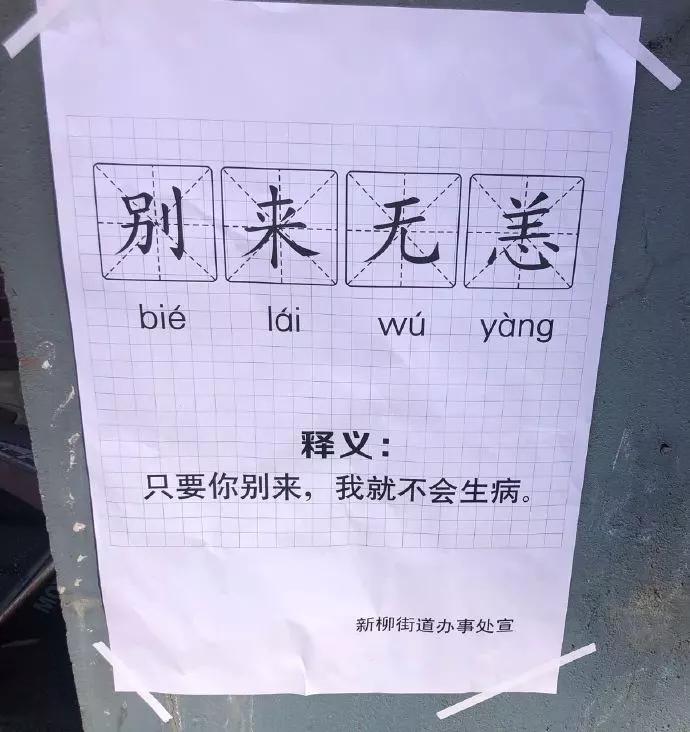 别来无恙
bié lái wú yàng
释义：
只要你别来，我就不会生病。
新柳街道办事处宣